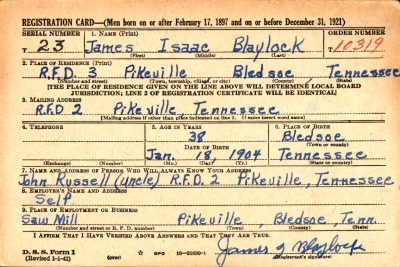 REGISTRATION CARD—(Men born on or after February 17, 1897 and on or before December 31, 1921)
SERIAL NUMBER 1. NAME (Print) ORDER NUMBER
T 23 James Isaac Blaylock T 10319
(First) (Middle) (Last)
2. PLACE OF RESIDENCE (Print)
R.F.D. 3 Pikeville Bledsoe Tennessee
(Number and street) (Town, township, village, or city) (County) (State)
[THE PLACE OF RESIDENCE GIVEN ON THE LINE ABOVE WILL DETERMINE LOCAL BOARD
JURISDICTION; LINE 2 OF REGISTRATION CERTIFICATE WILL BE IDENTICAL]
3. MAILING ADDRESS
R.F.D. 2 Pikeville, Tennessee
[Mailing address if other than place indicated on line 2. If same insert word same]
4. TELEPHONE 5. AGE IN YEARS 6. PLACE OF BIRTH
38 Bledsoe
DATE OF BIRTH (Town or county)
Jan. 18, 1904 Tennessee
(Exchange) (Number) (Mo.) (Day) (Yr.) (State or country)
7. NAME AND ADDRESS OF PERSON WHO WILL ALWAYS KNOW YOUR ADDRESS
John Russell (uncle) R.F.D. 2 Pikeville, Tennessee
8. EMPLOYER'S NAME AND ADDRESS
Self
9. PLACE OF EMPLOYMENT OR BUSINESS
Saw Mill Pikeville, Bledsoe, Tenn.
(Number and street or R. F. D. number) (Town) (County) (State)
I AFFIRM THAT I HAVE VERIFIED ABOVE ANSWERS AND THAT THEY ARE TRUE.
D. S. S. Form 1
(Revised 1-1-42) (over) ☆ GPO 16—21630-1 James I Blaylock
(Registrant's signature)